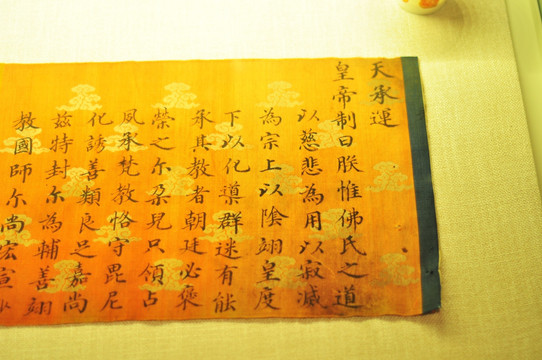 天承運
皇帝制曰朕惟佛氏之道
以慈悲為用以寂滅
為宗上以陰翊皇度
下以化導群迷有能
承其教者朝廷必褒
榮之尔朶児只領占
夙承梵教恪守毘尼
化誘善類良足嘉尚
玆特封尔為輔善翊
教國師尔尚宏宣